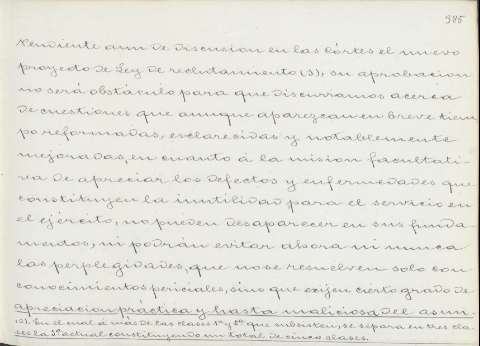 985
Pendiente aun de discusion en las córtes el nuevo
proyecto de Ley de reclutamiento (3), su aprobacion
no será obstáculo para que discurramos acerca
de cuestiones que aunque aparezcan en breve tiem
po reformadas, esclarecidas y notablemente
mejoradas, en cuanto á la mision facultati-
va de apreciar los defectos y enfermedades que
constituyen la inutilidad para el servicio en
el ejército, no pueden desaparecer en sus funda
mentos, ni podrán evitar ahora ni nunca
las perplegidades, que no se resuelven solo con
conocimientos periciales, sino que exijen cierto grado de
apreciacion práctica y hasta maliciosa del asun.
(3). En el cual á más de las clases 1ª y 2ª que subsisten, se separa en tres cla-
ses la 3ª actual constituyendo un total de cinco clases.